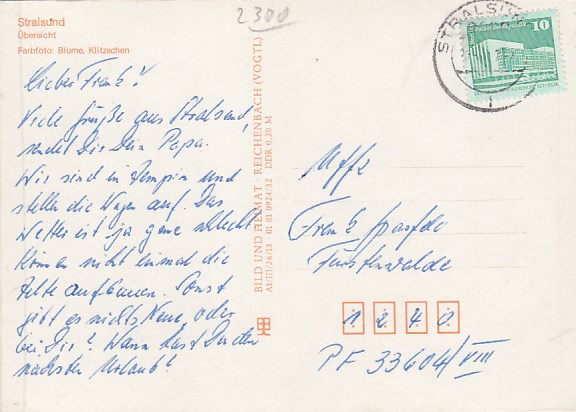 2300
Stralsund
Übersicht
Farbfoto: Blume, Klitzschen
STRALSUND
10
Lieber Frank!
Viele Grüße aus Stralsund,
sendet Dir Dein Papa.
Wir sind in Zempin und
stellen die Wagen auf. Das
Wetter ist ja ganz schlecht
können nicht einmal die
Zelte aufbauen. Sonst
gibt es nichts Neues, oder
bei Dir? Wann hast Du den
nächsten Urlaub?
BILD UND HEIMAT · REICHENBACH (VOGTL)
A1/III/26/13 · 01 01 0924/12 · DDR 0,20 M
Uffz
Frank
Fürstenwalde
1. 2. 4. 0.
PF 33604/VIII